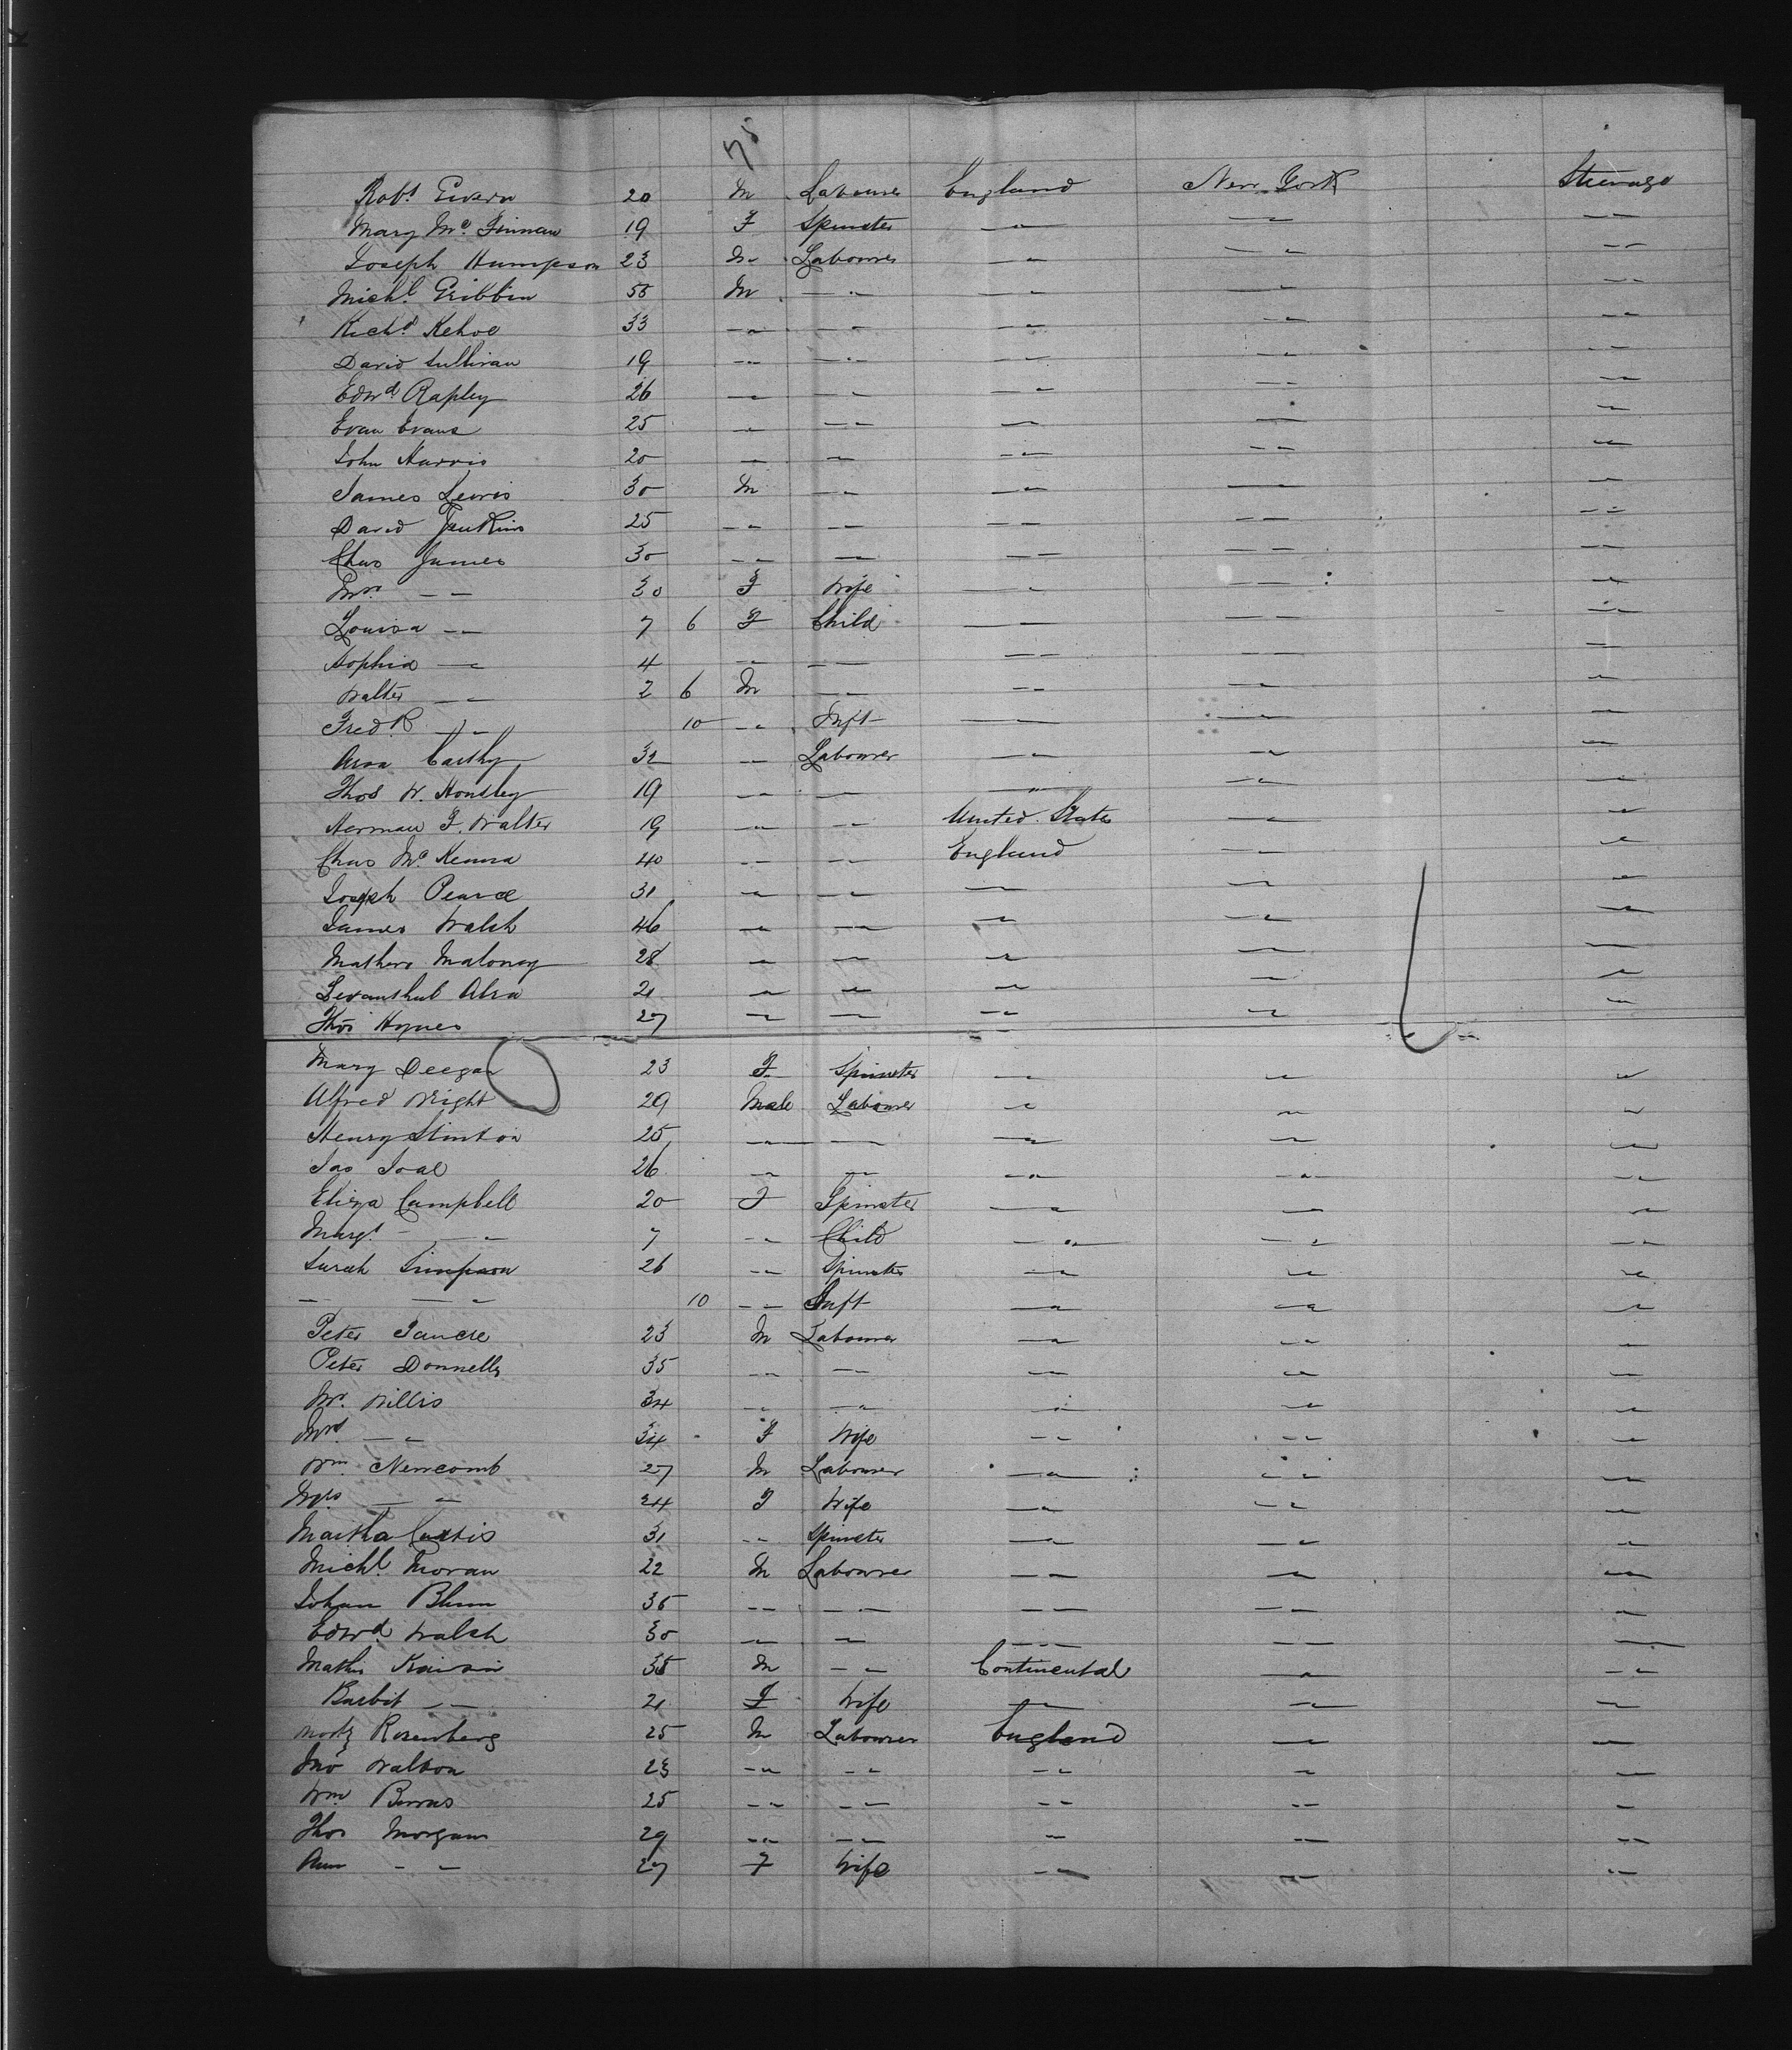 75
Robt Givern 20 M Labourer England New York Steerage
Mary Mc Finnean 19 F Spinster — " — — " — — " —
Joseph Humpson 23 M Labourer — " — — " — — " —
Michl Gribbin 55 M — " — — " — — " — — " —
Richd Kehoe 33 — " — — " — — " — — " — — " —
David Sullivan 19 — " — — " — — " — — " — — " —
Edwd Rapley 26 — " — — " — — " — — " — — " —
Evan Evans 25 — " — — " — — " — — " — — " —
John Harris 20 — " — — " — — " — — " — — " —
James Lewis 30 M — " — — " — — " — — " —
David Jenkins 25 — " — — " — — " — — " — — " —
Chas James 30 — " — — " — — " — — " — — " —
Mrs — " — 30 F Wife — " — — " — — " —
Louisa — " — 7 6 F Child — " — — " — — " —
Sophia — " — 4 — " — — " — — " — — " — — " —
Walter — " — 2 6 M — " — — " — — " — — " —
Fredk — " — 10 — " — Inft — " — — " — — " —
Carthy 32 — " — Labourer — " — — " — — " —
Thos W. Housley 19 — " — — " — — " — — " — — " —
Herman F. Walter 19 — " — — " — United States — " — — " —
Chas Mc Kenna 40 — " — — " — England — " — — " —
Joseph Pearce 31 — " — — " — — " — — " — — " —
James Walsh 46 — " — — " — — " — — " — — " —
Mathew Maloney 28 — " — — " — — " — — " — — " —
21 — " — — " — — " — — " — — " —
Thos Hynes 27 — " — — " — — " — — " — — " —
Mary Deegan 23 F Spinster — " — — " — — " —
Alfred Wright 29 Male Labourer — " — — " — — " —
Henry Stinton 25 — " — — " — — " — — " — — " —
Jas Joal 26 — " — — " — — " — — " — — " —
Eliza Campbell 20 F Spinster — " — — " — — " —
Margt — " — 7 — " — Child — " — — " — — " —
Sarah Simpson 26 — " — Spinster — " — — " — — " —
— " — 10 — " — Inft — " — — " — — " —
Peter 23 M Labourer — " — — " — — " —
Peter Donnelly 35 — " — — " — — " — — " — — " —
Mr. Willis 34 — " — — " — — " — — " — — " —
Mrs — " — 34 F Wife — " — — " — — " —
Wm Newcomb 27 M Labourer — " — — " — — " —
Mrs — " — 24 F Wife — " — — " — — " —
Martha Curtis 31 — " — Spinster — " — — " — — " —
Michl Moran 22 M Labourer — " — — " — — " —
Johan Blum 36 — " — — " — — " — — " — — " —
Edwd Walsh 30 — " — — " — — " — — " — — " —
Mathis 35 M — " — Continental — " — — " —
Barbit — " — 21 F Wife — " — — " — — " —
Rosenberg 25 M Labourer England — " — — " —
Jno Walton 23 — " — — " — — " — — " — — " —
Wm Burns 25 — " — — " — — " — — " — — " —
Thos Morgans 29 — " — — " — — " — — " — — " —
Ann — " — 27 F Wife — " — — " — — " —